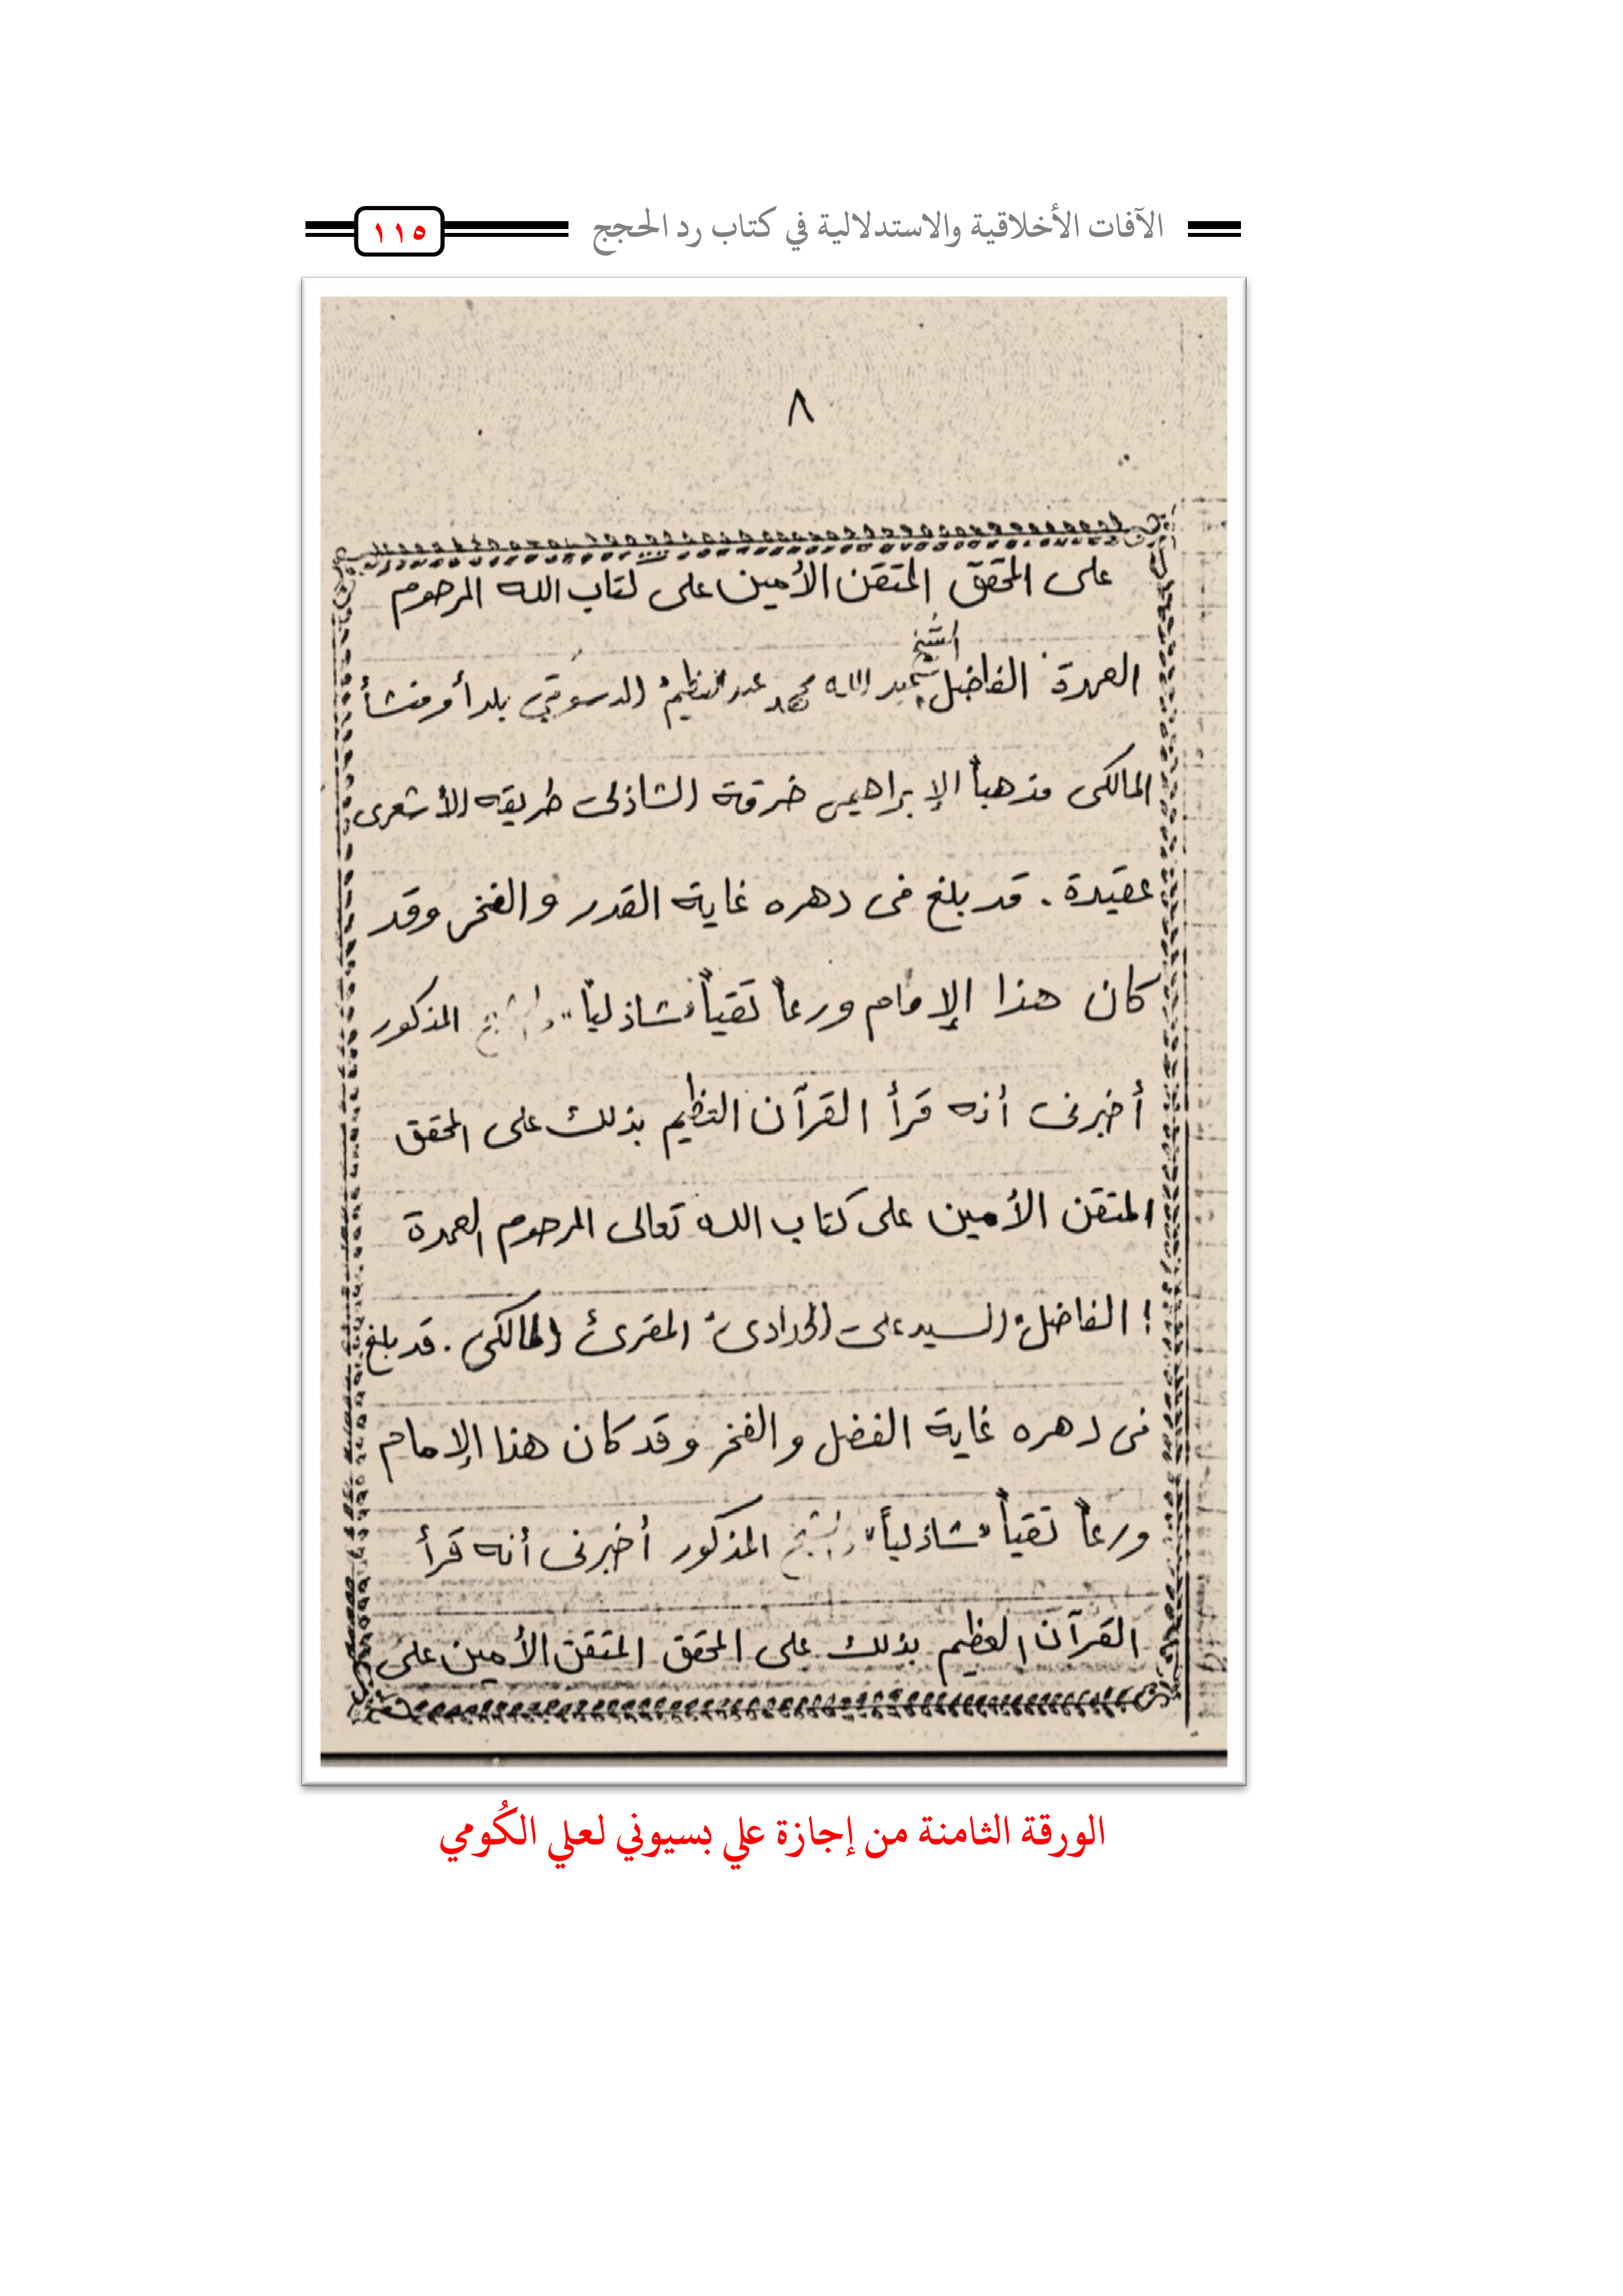 الآفات الأخلاقية والاستدلالية في كتاب رد الحجج
١١٥
٨
على المحقق المتقن الأمين على كتاب الله المرحوم
الشيخ
العمدة الفاضل عبد الله محمد عبد العظيم الدسوقي بلداً ومنشأ
المالكى مذهباً الإبراهيمى خرقة الشاذلى طريقه الأشعرى
عقيدة . قد بلغ فى دهره غاية القدر والفخر وقد
كان هذا الإمام ورعاً تقياً شاذلياً والشيخ المذكور
أخبرنى أنه قرأ القرآن العظيم بذلك على المحقق
المتقن الأمين على كتاب الله تعالى المرحوم العمدة
الفاضل السيد على الحدادى المقرئ المالكى . قد بلغ
فى دهره غاية الفضل والفخر وقد كان هذا الإمام
ورعاً تقياً شاذلياً والشيخ المذكور أخبرنى أنه قرأ
القرآن العظيم بذلك على المحقق المتقن الأمين على
الورقة الثامنة من إجازة علي بسيوني لعلي الكُومي